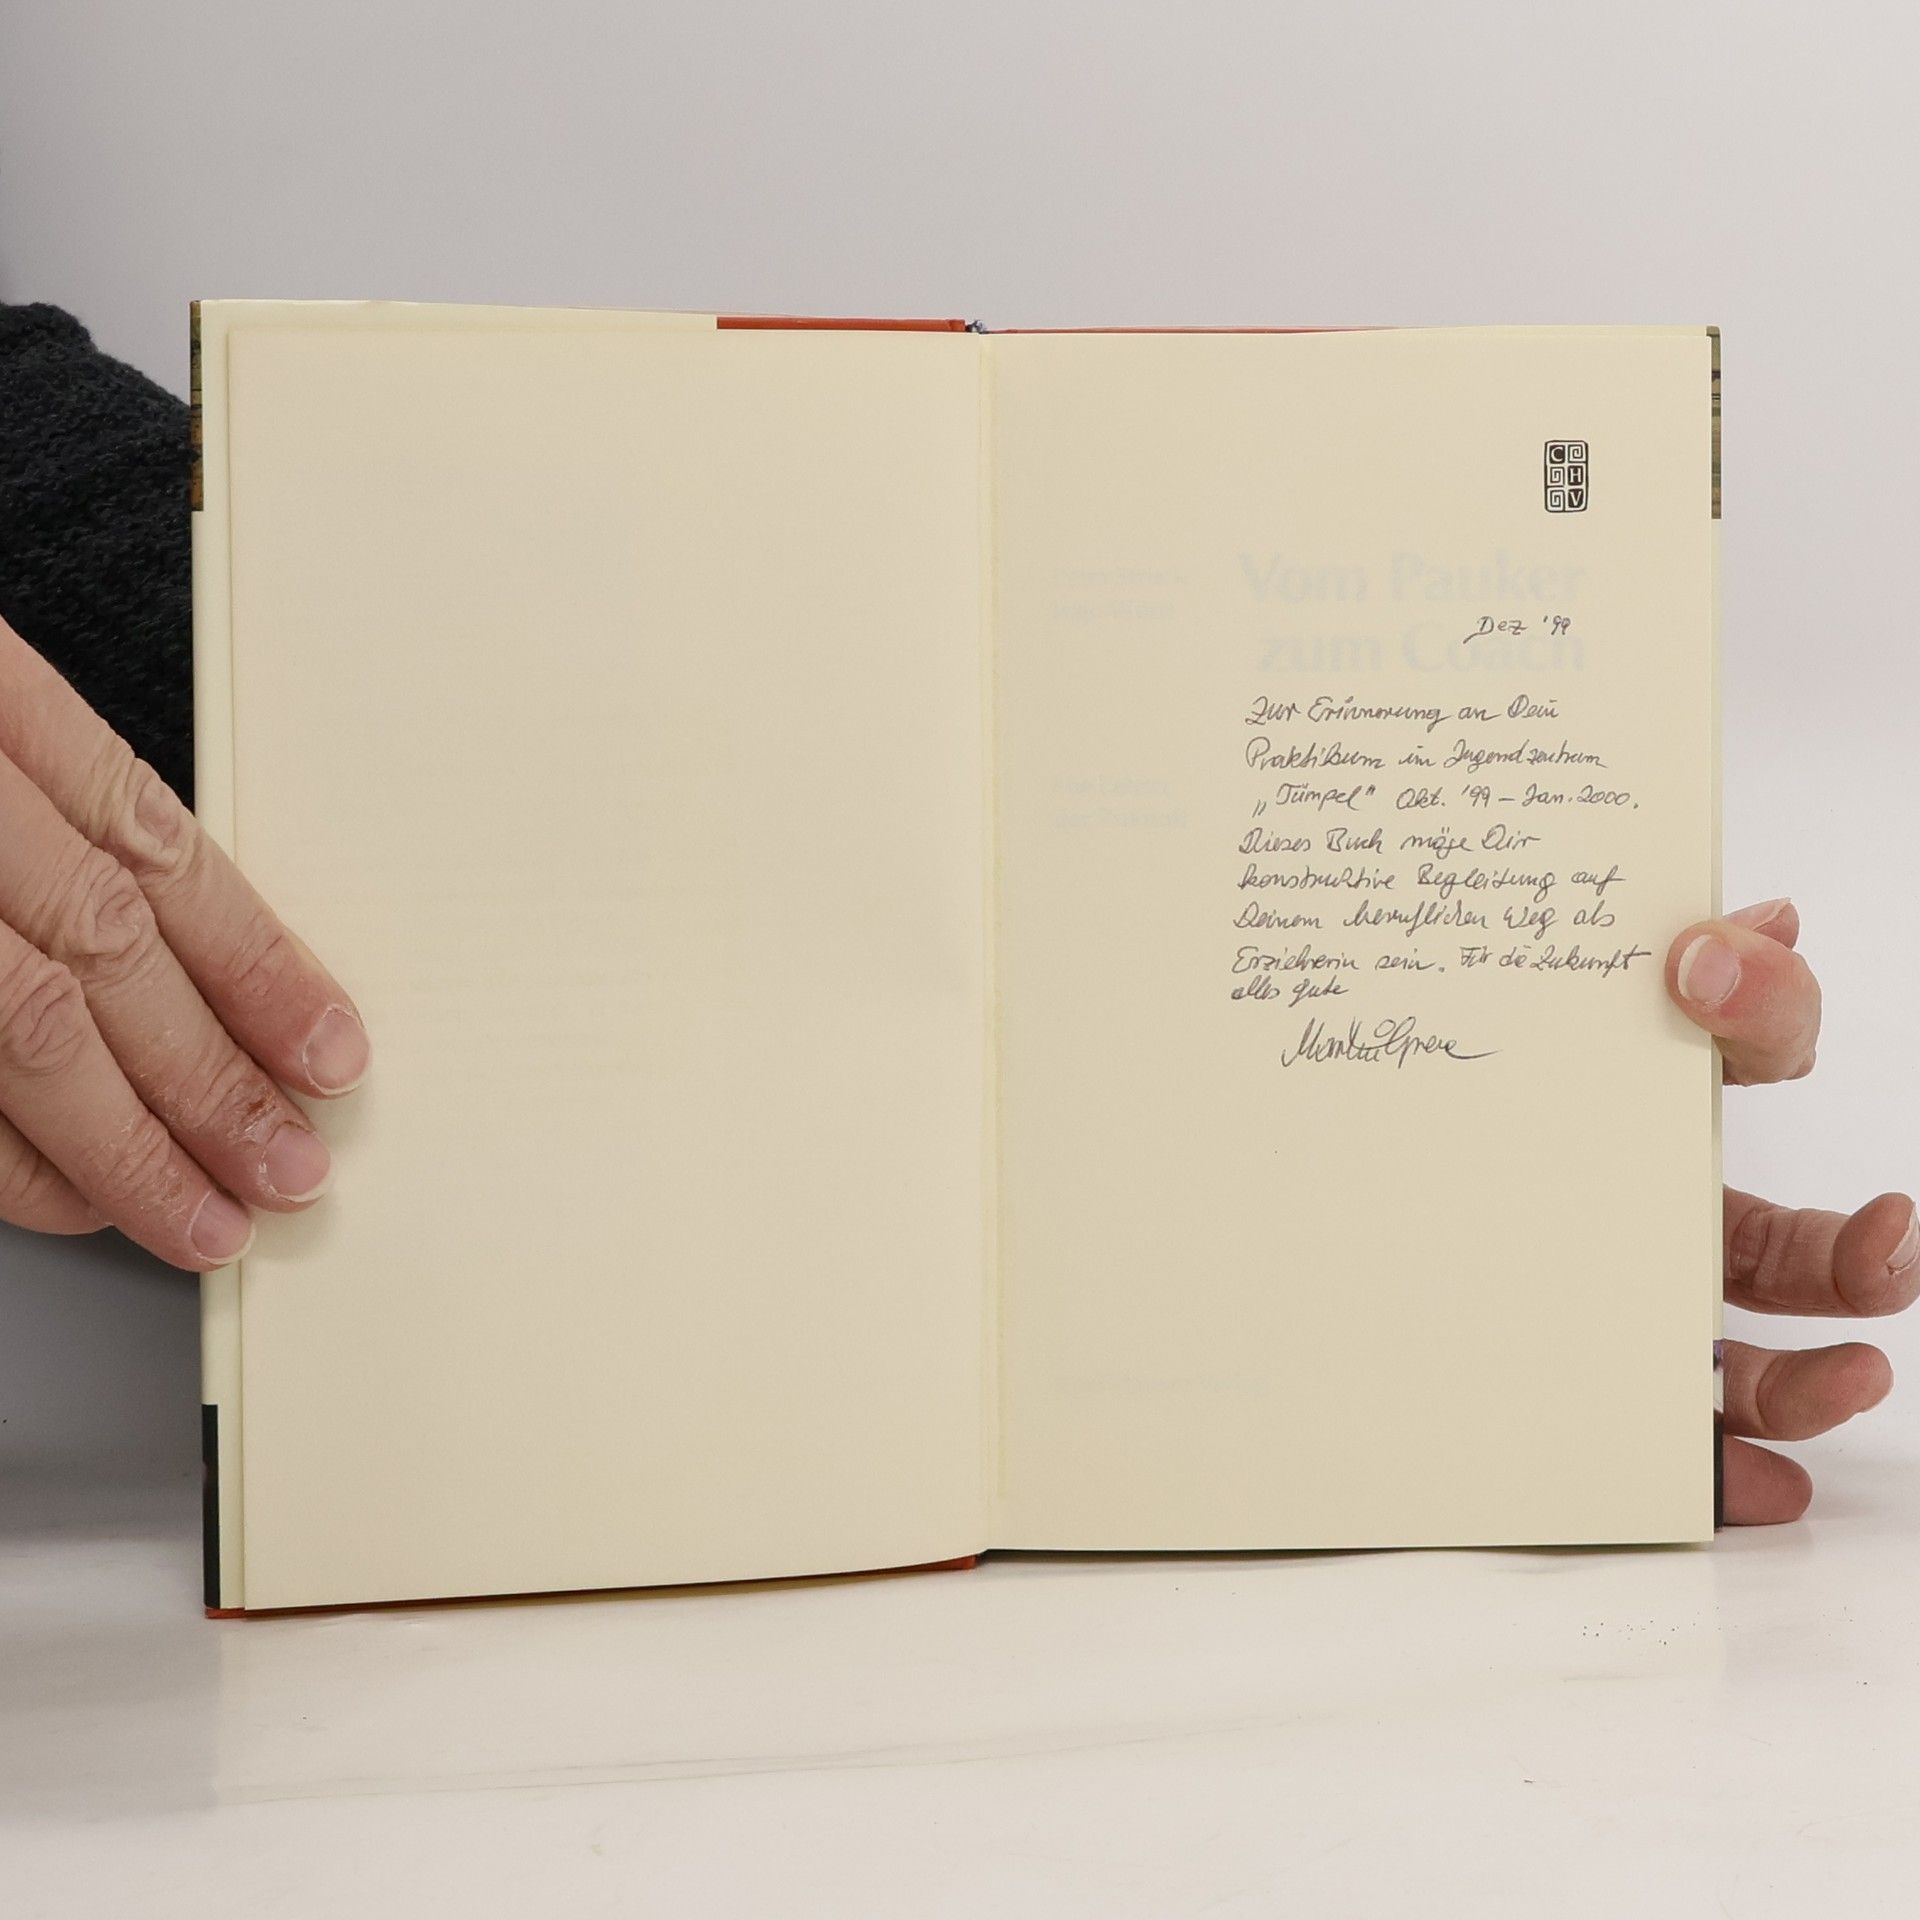 C
H
V
Vom Pauker
zum Coach
Dez '99
Zur Erinnerung an Dein
Praktikum im Jugendzentrum
„Tümpel" Okt. '99 – Jan. 2000.
Dieses Buch möge Dir
konstruktive Begleitung auf
Deinem beruflichen Weg als
Erzieherin sein. Für die Zukunft
alles gute